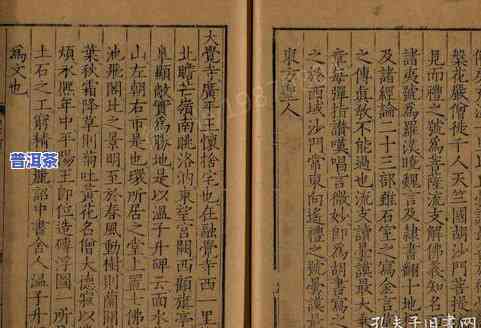 槃花嚴僧徒千人天竺國胡沙門菩提
見而禮之號為菩薩流支解佛義知名
諸夷號為羅漢曉魏言及隸書翻十地
及諸經論二十三部雖石室之寫金言
之傳真教不能過也流支讀曇謨最大
章每彈指讚嘆唱言微妙即為胡書寫
之於西域沙門常東向遙禮之號曇謨
東方聖人
大覺寺廣平王懷捨宅也在融覺寺西一里
北瞻芒嶺南眺洛汭東望宮闕西顧旗亭
臯顯敞實為勝地是以溫子昇碑云面水
山左朝右市是也環所居之堂上置七佛
池飛閣比之景明至於春風動樹則蘭開
葉秋霜降草則菊吐黃花名僧大德寂以
煩永熙年中平陽王即位造磚浮圖一所
土石之工窮精極麗詔中書舍人溫子昇
為文也
普洱茶
孔夫子旧書网